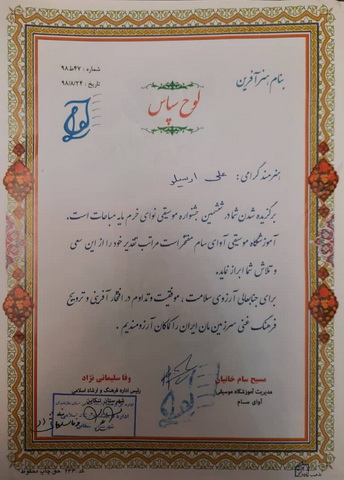 بنام هنر آفرین
شماره : ۴۷ط۹۸
تاریخ : ۹۸/۸/۲۴
لوح سپاس
هنرمند گرامی : علی ارسیلو
برگزیده شدن شما در ششمین جشنواره موسیقی نوای خرم مایه مباهات است.
آموزشگاه موسیقی آوای سام مفتخر است مراتب تقدیر خود را از این سعی
و تلاش شما ابراز نماید.
برای جنابعالی آرزوی سلامت ، موفقیت و تداوم در افتخار آفرینی و ترویج
فرهنگ غنی سرزمین مان ایران را کماکان آرزومندیم .
مسیح سام خانیان
مدیریت آموزشگاه موسیقی
آوای سام
وفا سلیمانی نژاد
رئیس اداره فرهنگ و ارشاد اسلامی
شهرستان تنکابن
کد ۱۶۳ حق چاپ محفوظ